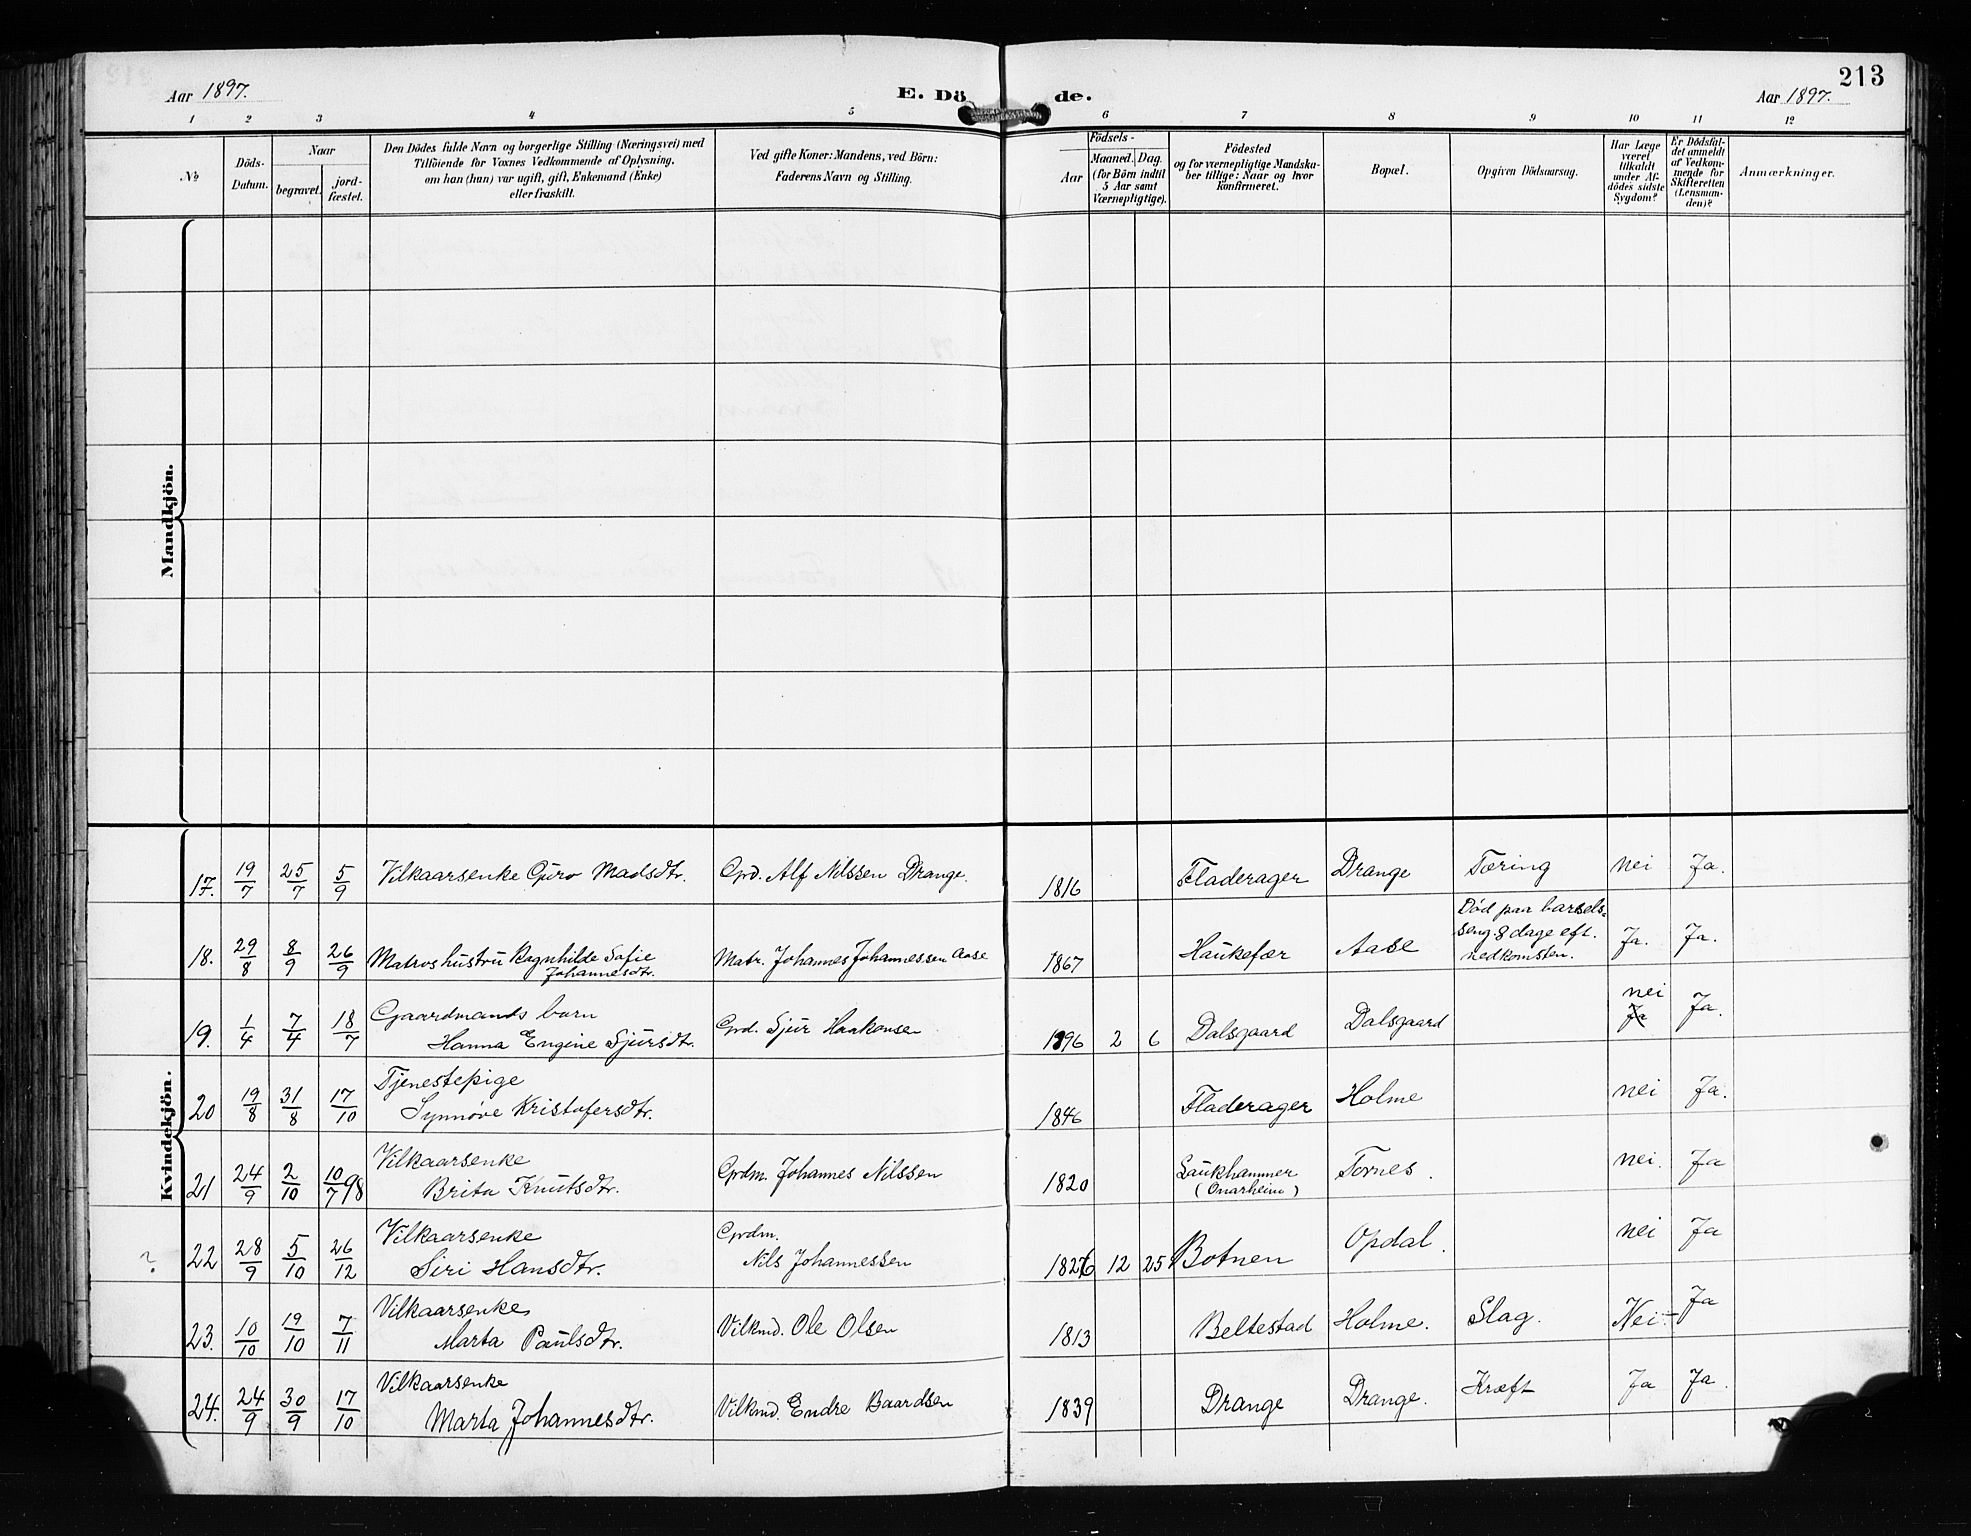 213
Aar 1897.
E. Döde.
Aar 1897.
1 2 3 4 5 6 7 8 9 10 11 12
No
Döds-Datum.
Naar
begravet.
jord-fæstet.
Den Dödes fulde Navn og borgerlige Stilling (Næringsvei) med
Tilföiende for Voxnes Vedkommende af Oplysning,
om han (hun) var ugift, gift, Enkemand (Enke)
eller fraskilt.
Ved gifte Koner: Mandens, ved Börn:
Faderens Navn og Stilling.
Födsels-
Aar
Maaned. Dag.
(for Börn indtil
5 Aar samt
Værnepligtige).
Födested
og for værnepligtige Mandska-
ber tillige: Naar og hvor
konfirmeret.
Bopæl.
Opgiven Dödsaarsag.
Har Læge
været
tilkaldt
under Af-
dödes sidste
Sygdom?
Er Dödsfal-
det anmeldt
af Vedkom-
mende for
Skifteretten
(Lensman-
den)?
Anmærkninger.
Mandkjön.
Kvindekjön.
17. 19/7 25/7 5/9 Vilkaarsenke Guro Madsdtr. Grd. Alf Nilssen Drange. 1816 Fladerager Drange Tæring nei Ja.
18. 29/8 8/9 26/9 Matros hustru Ragnhilde Sofie Johannesdtr. Matr. Johannes Johannessen Aase 1867 Haukefær Aase Död paa barsels-
seng. 8 dage eft.
nedkomsten. Ja. Ja.
19. 1/4 7/4 18/7 Gaardmands barn
Hanna Engine Sjursdt. Grd. Sjur Haakonsen 1896 2 6 Dalsgaard Dalsgaard nei Ja Ja.
20 19/8 31/8 17/10 Tjenestepige
Synnøve Kristofersdtr. 1846 Fladerager Holme nei Ja.
21 24/9 2/10 10/7 98 Vilkaarsenke
Brita Knutsdtr. Grdm. Johannes Nilssen 1820 Saukhammer
(Onarheim) Tornes. nei. Ja
? 22 28/9 5/10 26/12 Vilkaarsenke
Siri Hansdtr. Grdm.
Nils Johannessen 1826 12 25 Botnen Opdal. nei Ja
23. 10/10 19/10 7/11 Vilkaarsenke
Marta Paulsdtr. Vilkmd. Ole Olsen 1813 Beltestad Holme. Slag. Nei- Ja
24. 24/9 30/9 17/10 Vilkaarsenke
Marta Johannesdtr. Vilkmd. Endre Baardsen 1839 Drange Drange. Kræft Ja Ja.